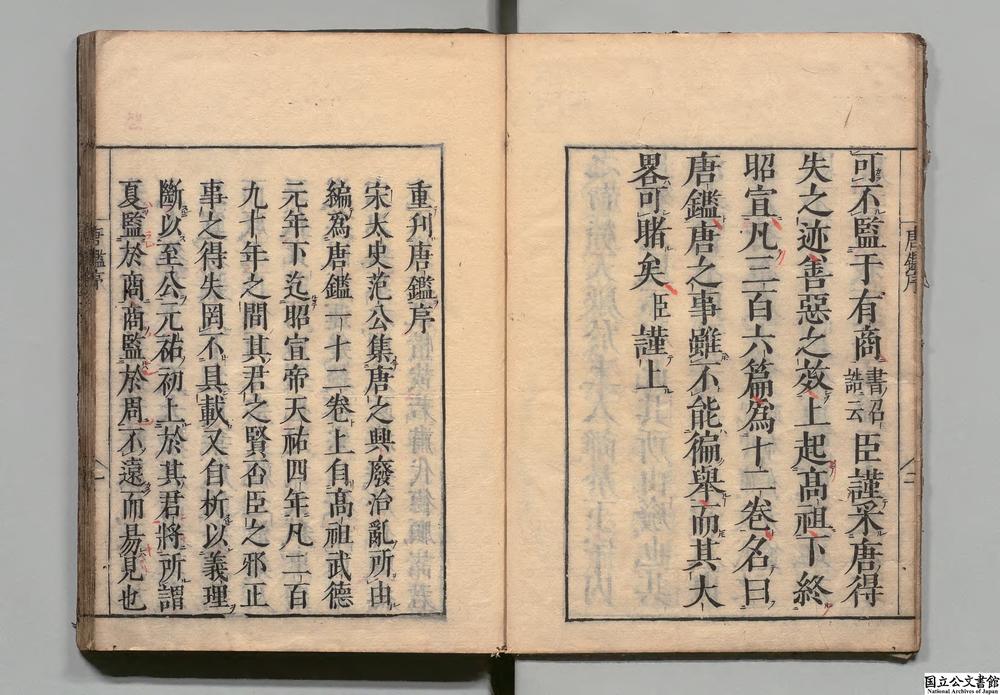 可不監于有商書召誥云臣謹采唐得
失之迹善惡之效上起高祖下終
昭宣凡三百六篇為十二卷名曰
唐鑑唐之事雖不能徧舉而其大
畧可睹矣臣謹上
唐鑑序
二
重刋唐鑑序
宋太史范公集唐之興廢治亂所由
編為唐鑑一十二卷上自高祖武德
元年下迄昭宣帝天祐四年凡二百
九十年之間其君之賢否臣之邪正
事之得失罔不具載又自析以義理
斷以至公元祐初上於其君將所謂
夏監於商商監於周不遠而易見也
唐鑑序
一
国立公文書館
National Archives of Japan